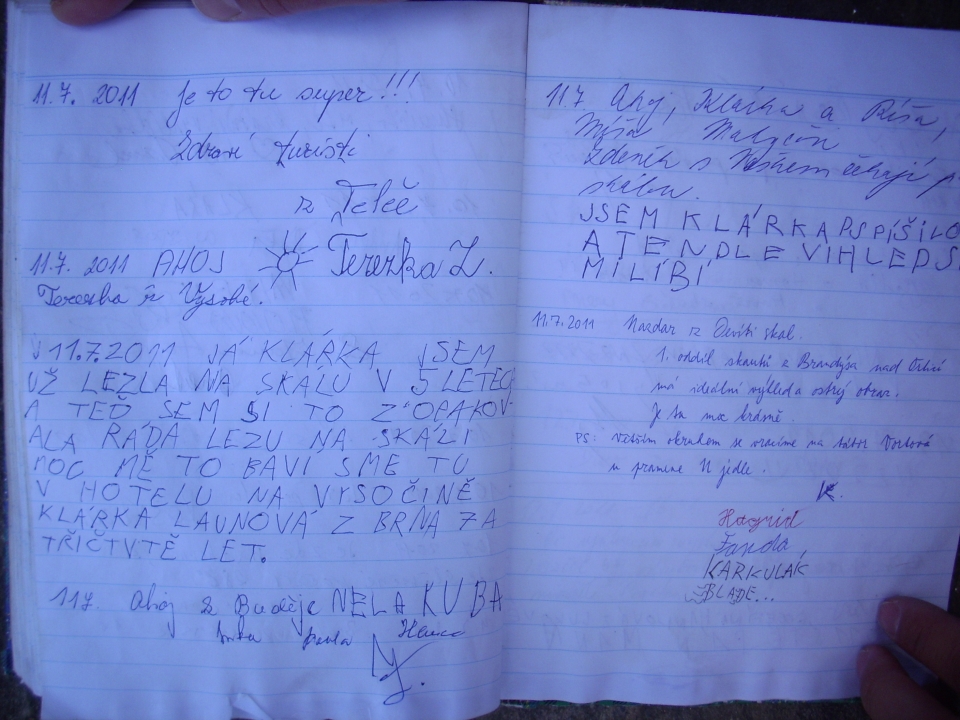 11.7. 2011 Je to tu super!!!
Zdraví turisti
z Telče
11.7. 2011 AHOJ Terezka Z.
Terezka z Vysoké.
11.7.2011 JÁ KLÁRKA JSEM
UŽ LEZLA NA SKÁLU V 5 LETECH
A TEĎ SEM SI TO ZOPAKOV-
ALA RÁDA LEZU NA SKÁLI
MOC MĚ TO BAVÍ SME TU
V HOTELU NA VYSOČINĚ
KLÁRKA LAUNOVÁ Z BRNA 7 A
TŘIČTVTĚ LET.
117. Ahoj z Buděje NELA KUBA
Pavla Hanca
117 Ahoj, Klárka a Ríša,
Míša
Zdeněk s Vaškem čekají
skálu.
JSEM KLÁRKA PSPÍŠILO
A TENDLE VIHLED S
MI LÍBÍ
11.7.2011 Nazdar z Devíti skal.
1. oddíl skautů z Brandýsa nad Orlicí
má ideální výhled a ostrý obraz.
Je tu moc krásně.
PS: Větším obrukem se vracíme na tábor Vortová
u pramene U jedle.
K.
Hagrid
Fanda,
KARKULAK
BLADE...